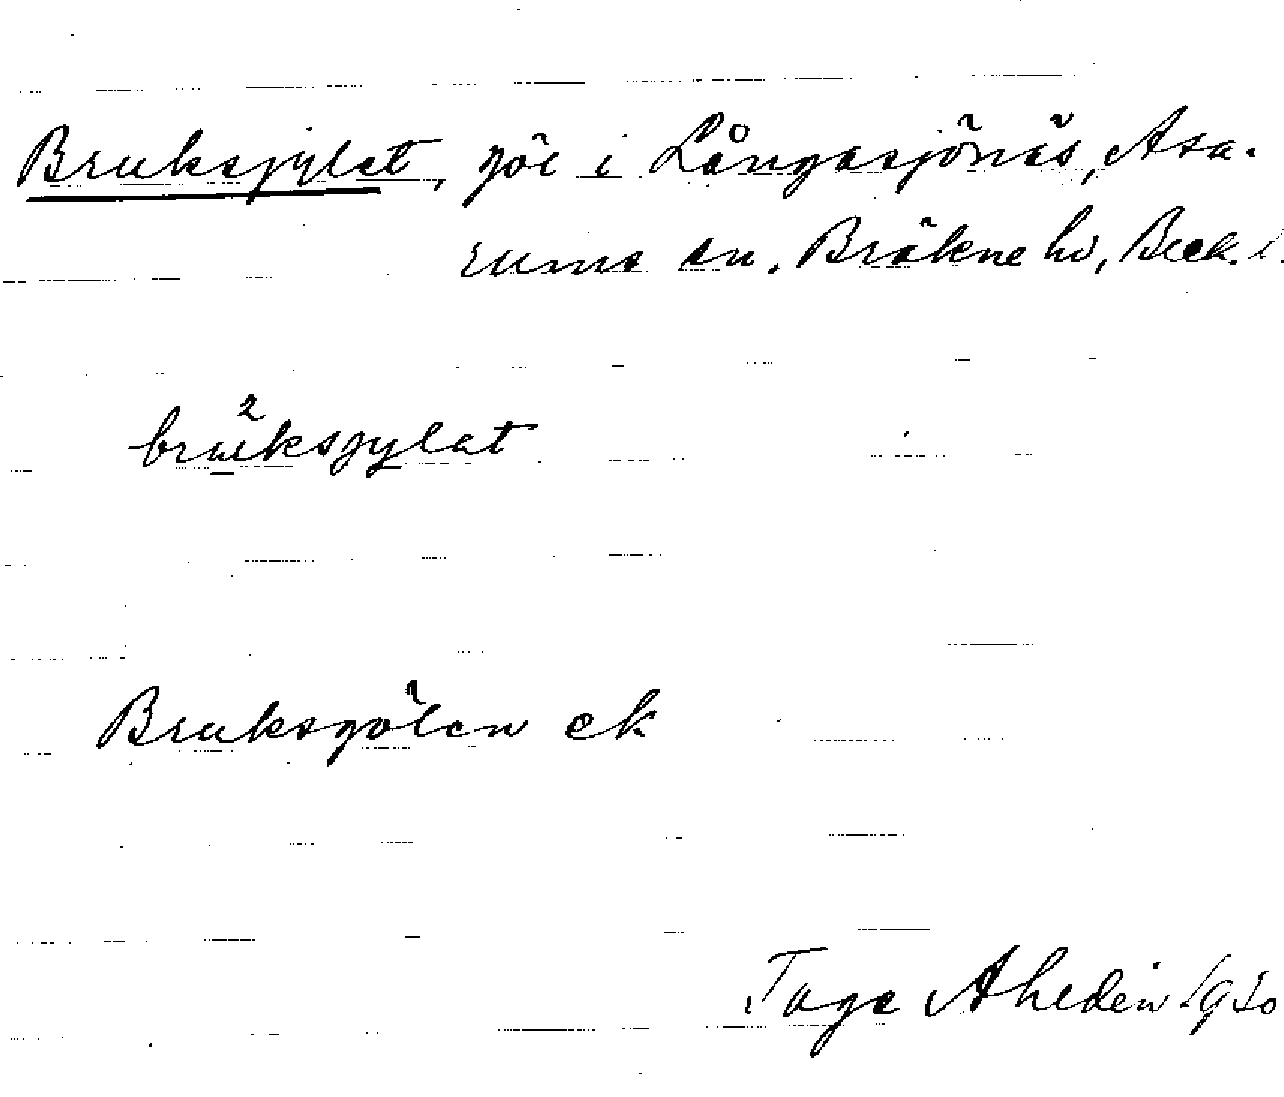 Bruksjylet, göl i Långasjönäs, Asa-
rums sn. Bräkne hd, Blek. l.
bruksgylat
Bruksgölen ek
Tage Ahldén 1930